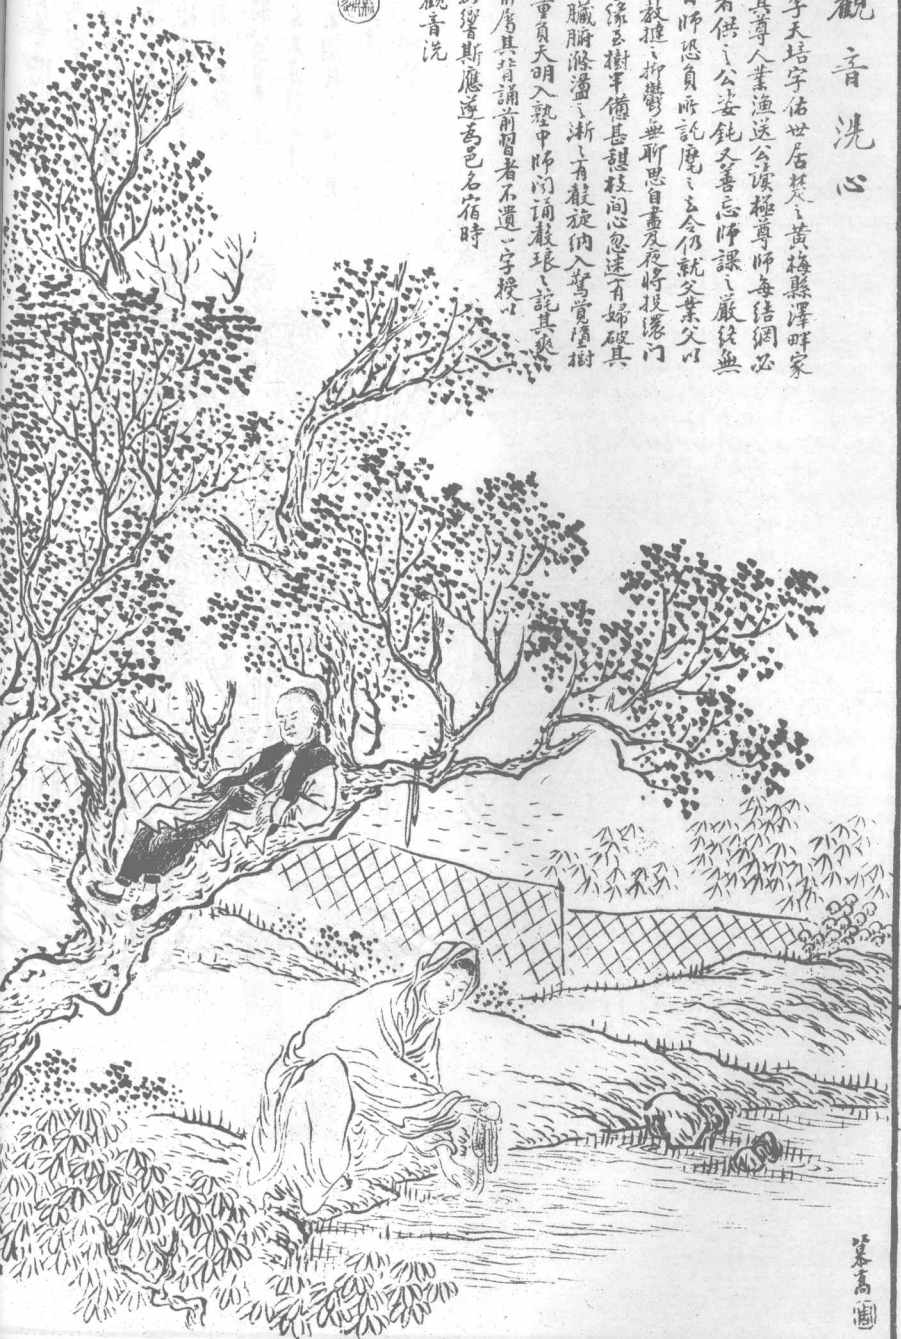 觀音洗心
字天培字佑世居楚之黃梅縣澤畔家
其尊人業漁送公讀極尊師每結網必
者供之公姿鈍又善忘師課之嚴終無
師恐負所託麾之去令仍就父業父以
教撻之抑鬱無聊思自盡及夜將投繯門
緣至樹半備甚憩枝間心忽迷有婦破其
臟腑滌盪之漸之有聲旋納入驚覺墮樹
重負天明入塾中師前誦聲琅之詫其爽
前焉其背誦前習者不遺一字授以
響斯應遂爲邑名宿時
觀音洗
慕高